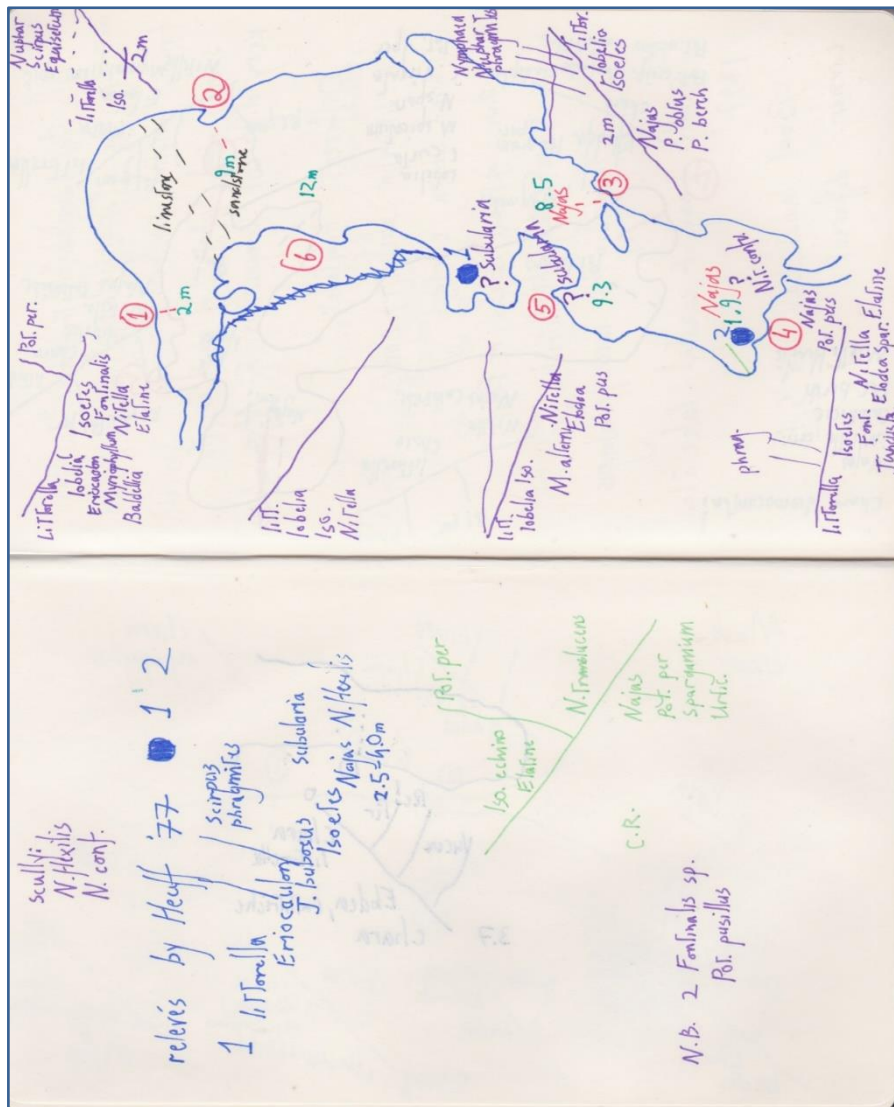 Nuphar
Scirpus
Equisetum
Littorella
Iso.
2m
2
limestone
9m
sandstone
12m
6
1
2m
Pot. per.
Littorella
lobelia
Eriocaulon
Myriophyllum
Baldellia
Isoetes
Fontinalis
Nitella
Elatine
Litt.
lobelia
Iso.
Nitella
Nymphaea
Nuphar
phragmites
Littor.
lobelia
Isoetes
2m
Najas
P. obtus
P. berch
8.5
Najas
3
1
? Subularia
? Subularia
5
9.3
Najas
2 1.9
?
Nit. conf.
4
Litt.
lobelia Iso.
M. altern. Nitella
Elodea
Pot. pus
phrag.
Littorella
Isoetes
Font.
Najas
Pot. pus
Nitella
Elodea Spar. Elatine
Scully:
N. flexilis
N. conf.
relevés by Heuff '77 1 2
1 Littorella
Eriocaulon
J. bulbosus
Scirpus
phragmites
Subularia
Isoetes Najas N. flexilis
2.5-4.0m
Pot. per
Iso. echino
Elatine
N. translucens
Najas
Pot. per
Sparganium
Utric.
C.R.
N.B. 2 Fontinalis sp.
Pot. pusillus